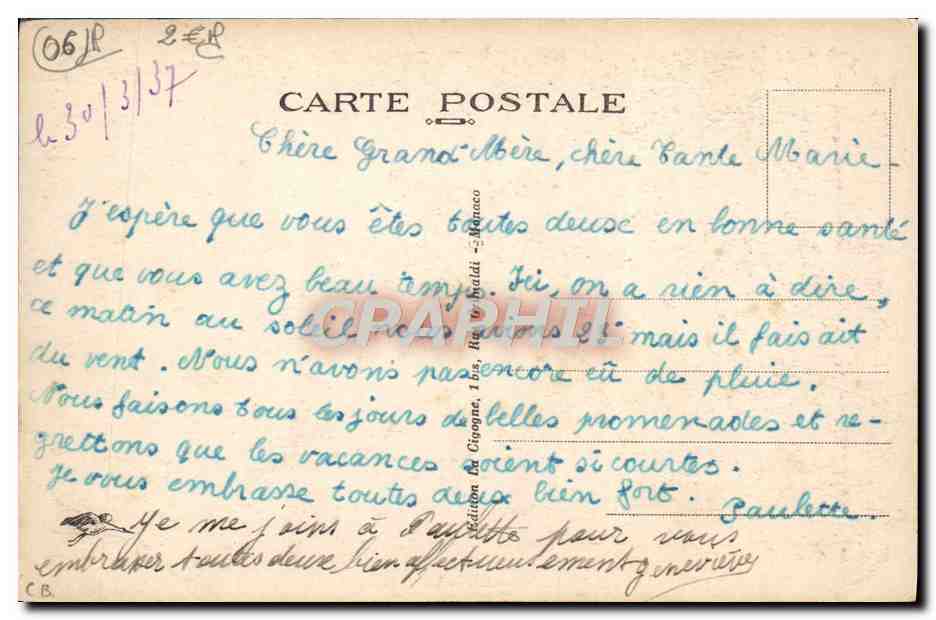 06
2€
le 30/3/37
CARTE POSTALE
Chère Grand'Mère, chère Tante Marie -
J'espère que vous êtes toutes deux en bonne santé
et que vous avez beau temps. Ici, on a rien à dire,
ce matin au soleil nous avions 25° mais il faisait
du vent. Nous n'avons pas encore eû de pluie.
Nous faisons tous les jours de belles promenades et re-
grettons que les vacances soient si courtes.
Je vous embrasse toutes deux bien fort.
Paulette.
Je me joins à Paulette pour vous
embrasser toutes deux bien affectueusement Geneviève
C B.
Edition La Cigogne, 1 bis, Rue Grimaldi - Monaco
CPAPHIL